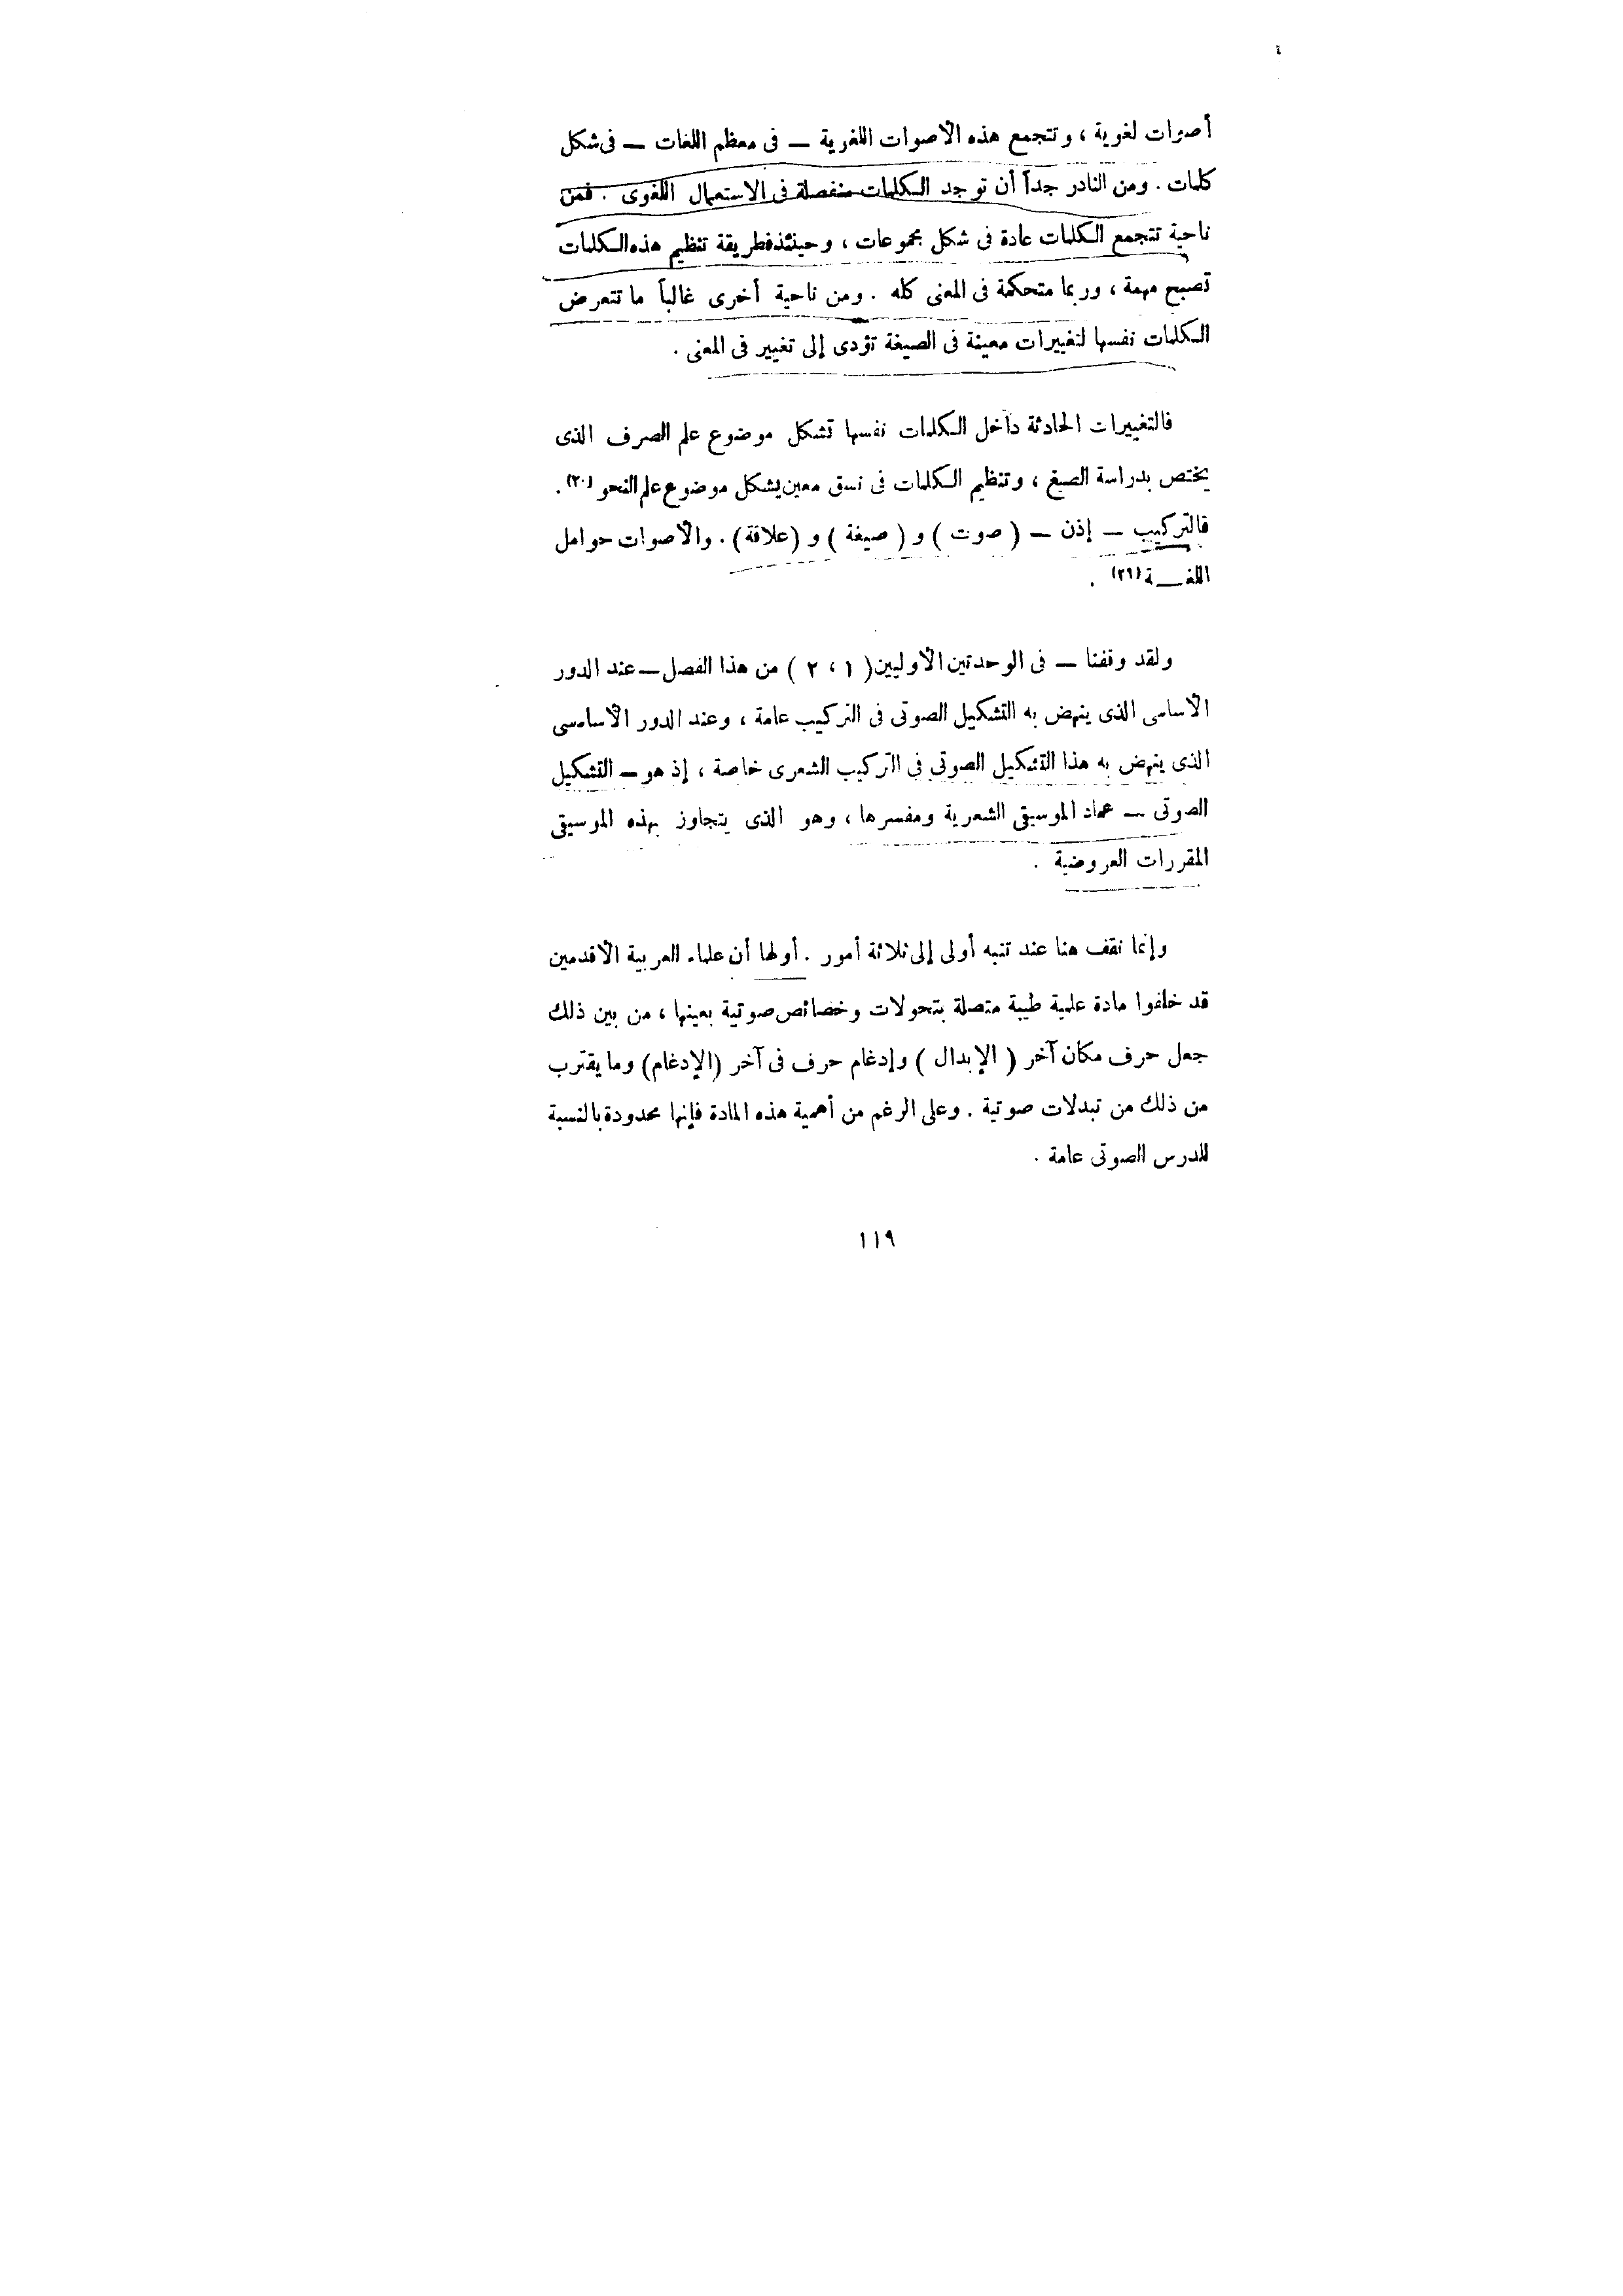 أصوات لغوية ، وتتجمع هذه الأصوات اللغوية — فى معظم اللغات — فى شكل
كلمات . ومن النادر جداً أن توجد الكلمات منفصلة فى الاستعمال اللغوى . فمن
ناحية تتجمع الكلمات عادة فى شكل مجموعات ، وحينئذ فطريقة تنظيم هذه الكلمات
تصبح مهمة ، وربما متحكمة فى المعنى كله . ومن ناحية أخرى غالباً ما تتعرض
الكلمات نفسها لتغييرات معينة فى الصيغة تؤدى إلى تغيير فى المعنى .
فالتغييرات الحادثة داخل الكلمات نفسها تشكل موضوع علم الصرف الذى
يختص بدراسة الصيغ ، وتنظيم الكلمات فى نسق معين يشكل موضوع علم النحو (٢٠) .
فالتركيب — إذن — ( صوت ) و ( صيغة ) و (علاقة) . والأصوات حوامل
اللغــة (٢١) .
ولقد وقفنا — فى الوحدتين الأوليين ( ١ ، ٢ ) من هذا الفصل — عند الدور
الأساسى الذى ينهض به التشكيل الصوتى فى التركيب عامة ، وعند الدور الأساسى
الذى ينهض به هذا التشكيل الصوتى فى التركيب الشعرى خاصة ، إذ هو — التشكيل
الصوتى — عماد الموسيقى الشعرية ومفسرها ، وهو الذى يتجاوز بهذه الموسيقى
المقررات العروضية .
وإنما نقف هنا عند تنبه أولى إلى ثلاثة أمور . أولها أن علماء العربية الأقدمين
قد خلفوا مادة علمية طيبة متصلة بتحولات وخصائص صوتية بعينها ، من بين ذلك
جعل حرف مكان آخر ( الإبدال ) وإدغام حرف فى آخر (الإدغام) وما يقترب
من ذلك من تبدلات صوتية . وعلى الرغم من أهمية هذه المادة فإنها محدودة بالنسبة
للدرس الصوتى عامة .
١١٩